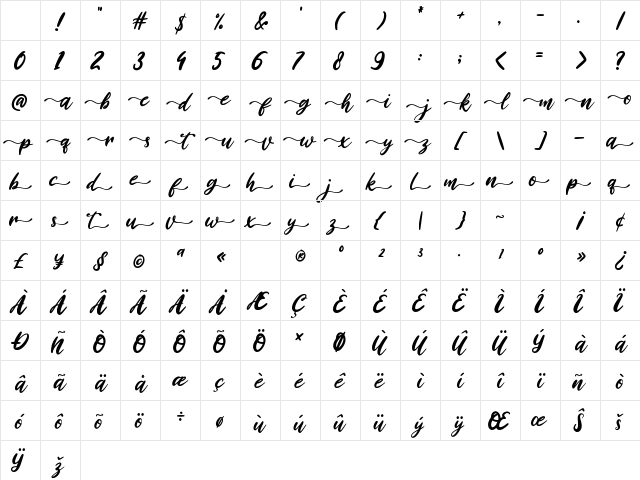 ! " # $ % & ' ( ) * + , - . /
0 1 2 3 4 5 6 7 8 9 : ; < = > ?
@ a b c d e f g h i j k l m n o
p q r s t u v w x y z [ \ ] − a
b c d e f g h i j k l m n o p q
r s t u v w x y z { | } ~ ¡ ¢
£ ¥ § © ª « ® º ² ³ . ¹ º » ¿
À Á Â Ã Ä Å Æ Ç È É Ê Ë Ì Í Î Ï
Ð Ñ Ò Ó Ô Õ Ö × Ø Ù Ú Û Ü Ý à á
â ã ä å æ ç è é ê ë ì í î ï ñ ò
ó ô õ ö ÷ ø ù ú û ü ý ÿ Œ œ Š š
Ÿ ž